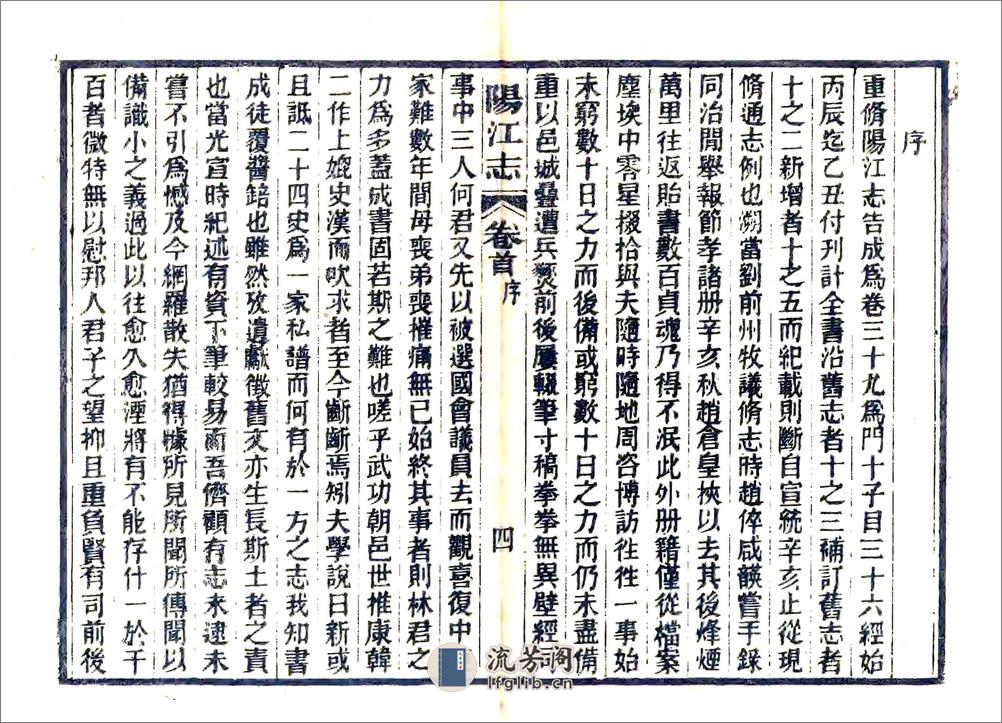 序
重脩陽江志告成爲卷三十九爲門十子目三十六經始
丙辰迄乙丑付刊計全書沿舊志者十之三補訂舊志者
十之二新增者十之五而紀載則斷自宣統辛亥止從現
脩通志例也溯當劉前州牧議脩志時趙倅咸韺嘗手錄
同治閒舉報節孝諸册辛亥秋趙倉皇挾以去其後烽煙
萬里往返貽書數百貞魂乃得不泯此外册籍僅從檔案
塵埃中零星掇拾與夫隨時隨地周咨博訪往往一事始
末窮數十日之力而後備或窮數十日之力而仍未盡備
重以邑城疊遭兵燹前後屢輟筆寸稿拳拳無異壁經記
陽江志 卷首 序 四
事中三人何君又先以被選國會議員去而觀喜復中更
家難數年間母喪弟喪摧痛無已始終其事者則林君之
力爲多蓋成書固若斯之難也嗟乎武功朝邑世推康韓
二作上媲史漢而吹求者至今齗齗焉矧夫學說日新或
且詆二十四史爲一家私譜而何有於一方之志我知書
成徒覆醬瓿也雖然攷遺獻徵舊文亦生長斯土者之責
也當光宣時紀述有資下筆較易而吾儕顧有志未逮未
嘗不引爲憾及今網羅散失猶得據所見所聞所傳聞以
備識小之義過此以往愈久愈湮將有不能存什一於千
百者微特無以慰邦人君子之望抑且重負賢有司前後
流芳閣
lfglib.cn